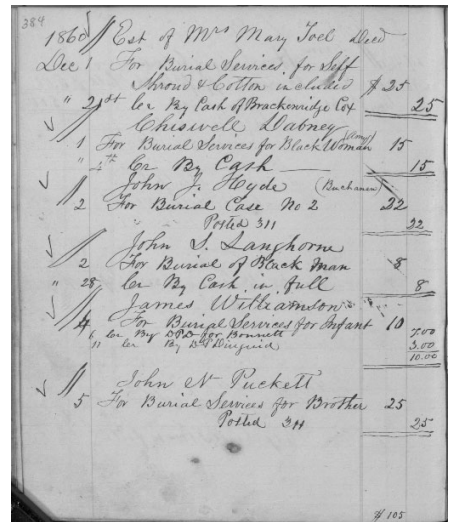 384
1860 Est of Mrs Mary Toel Decd
Dec 1 For Burial Services for Self
Shroud & Cotton included $ 25
" 21st Cr By Cash of Brackenridge Cox 25
Chiswell Dabney
1 For Burial Services for Black Woman 15
" Cr By Cash 15
John J. Hyde (Buchanan)
2 For Burial Case No 2 22
Posted 311 22
John S. Langhorne
2 For Burial of Black Man 8
" 28 Cr By Cash in full 8
James Williamson
4 For Burial Services for Infant 10
Cr By DPD for Bonnett 7.00
11 Cr By D P Diuguid 3.00
10.00
John N Puckett
5 For Burial Services for Brother 25
Posted 311 25
$ 105